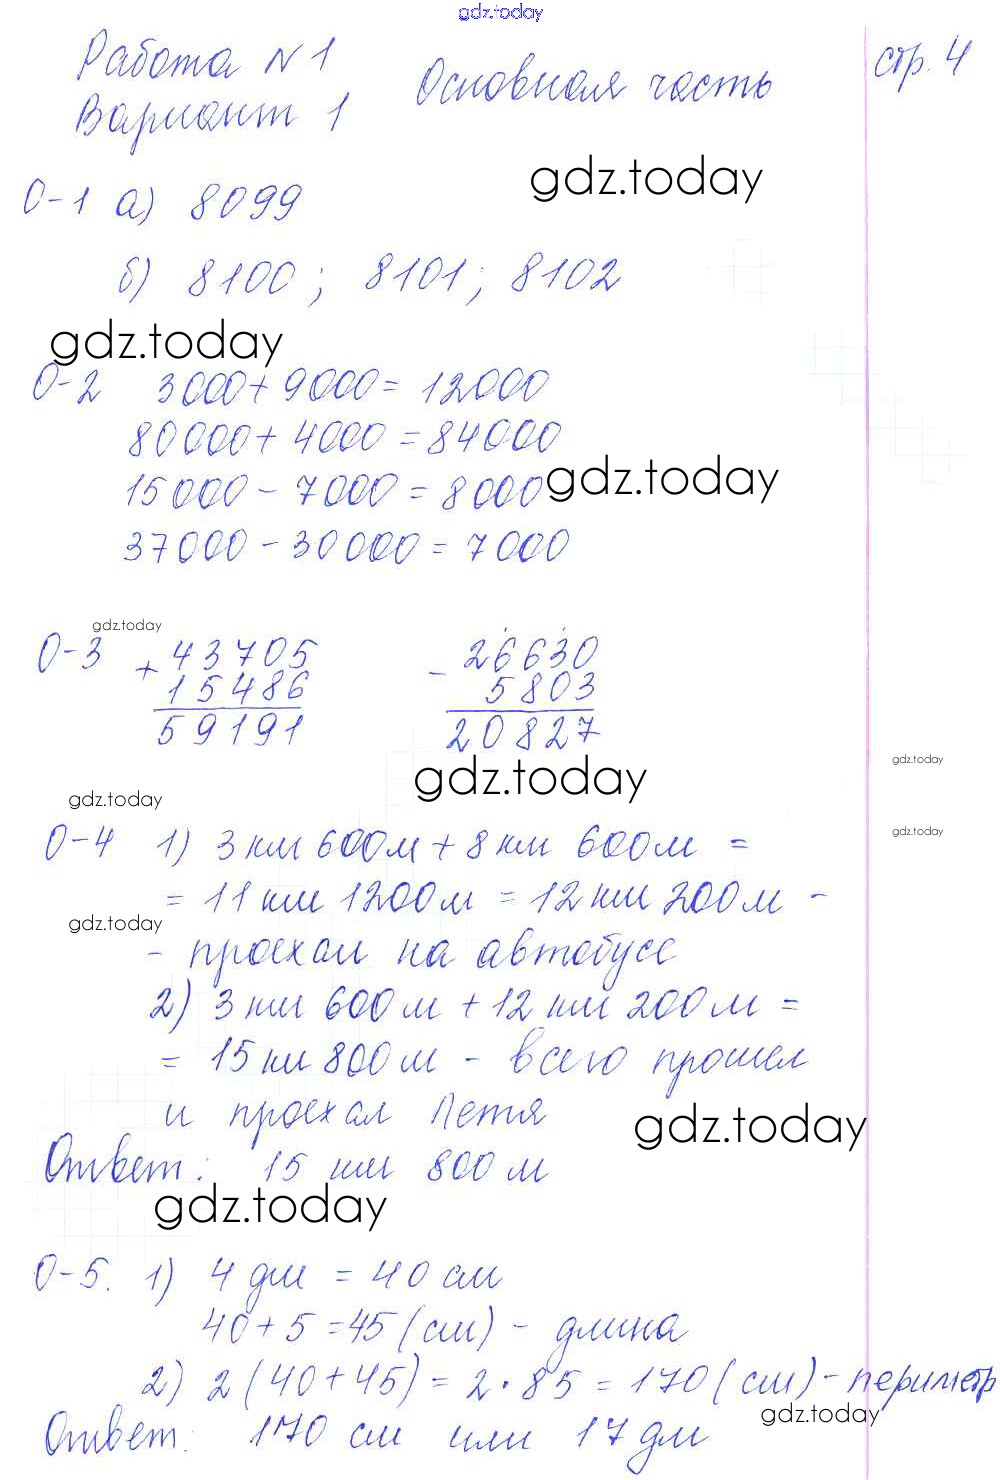 gdz.today
Работа N 1 Основная часть стр. 4
Вариант 1
gdz.today
О-1 а) 8099
б) 8100 ; 8101 ; 8102
gdz.today
О-2 3000 + 9000 = 12000
80000 + 4000 = 84000
15000 - 7000 = 8000 gdz.today
37000 - 30000 = 7000
gdz.today
О-3 + 43705 - 26630
15486 5803
59191 20827
gdz.today gdz.today
gdz.today
О-4 1) 3 км 600 м + 8 км 600 м = gdz.today
= 11 км 1200 м = 12 км 200 м -
gdz.today
- проехал на автобусе
2) 3 км 600 м + 12 км 200 м =
= 15 км 800 м - всего прошел
и проехал Петя gdz.today
Ответ: 15 км 800 м
gdz.today
О-5. 1) 4 дм = 40 см
40 + 5 = 45 (см) - длина
2) 2 (40 + 45) = 2 · 85 = 170 (см) - периметр
gdz.today
Ответ: 170 см или 17 дм